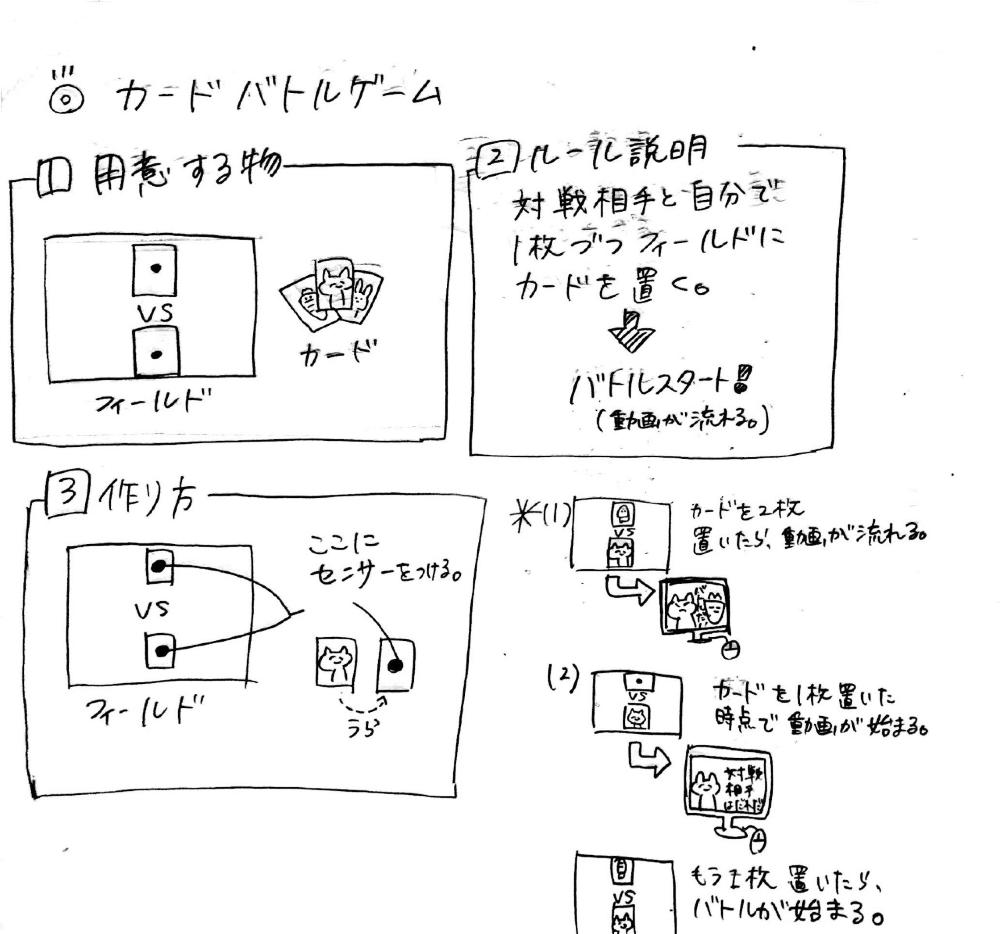 カードバトルゲーム
1 用意する物
VS
フィールド
カード
2 ルール説明
対戦相手と自分で
1枚づつフィールドに
カードを置く。
バトルスタート!
(動画が流れる。)
3 作り方
ここに
センサーをつける。
VS
フィールド
うら
*(1)
VS
カードを2枚
置いたら、動画が流れる。
(2)
VS
カードを1枚置いた
時点で動画が始まる。
対戦
相手
はだれだ
VS
もう1枚置いたら、
バトルが始まる。